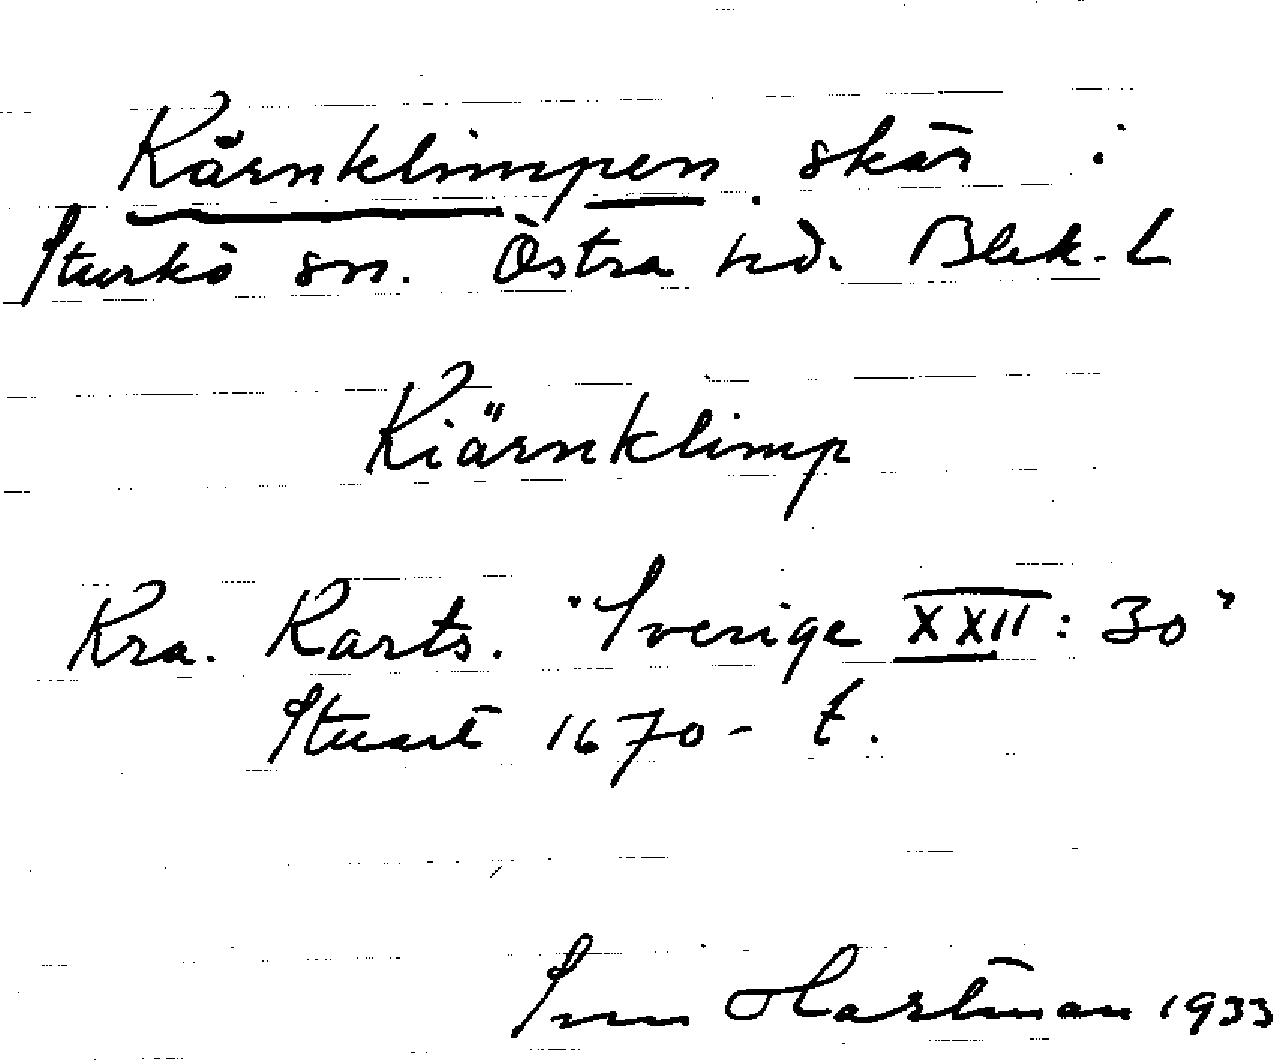 Kärnklimpen. skär i
Sturkö sn. Östra hd. Blek. L
Kiärnklimp
Kra. Karts. "Sverige XXII: 30"
Stuart 1670- t.
Hartman 1933